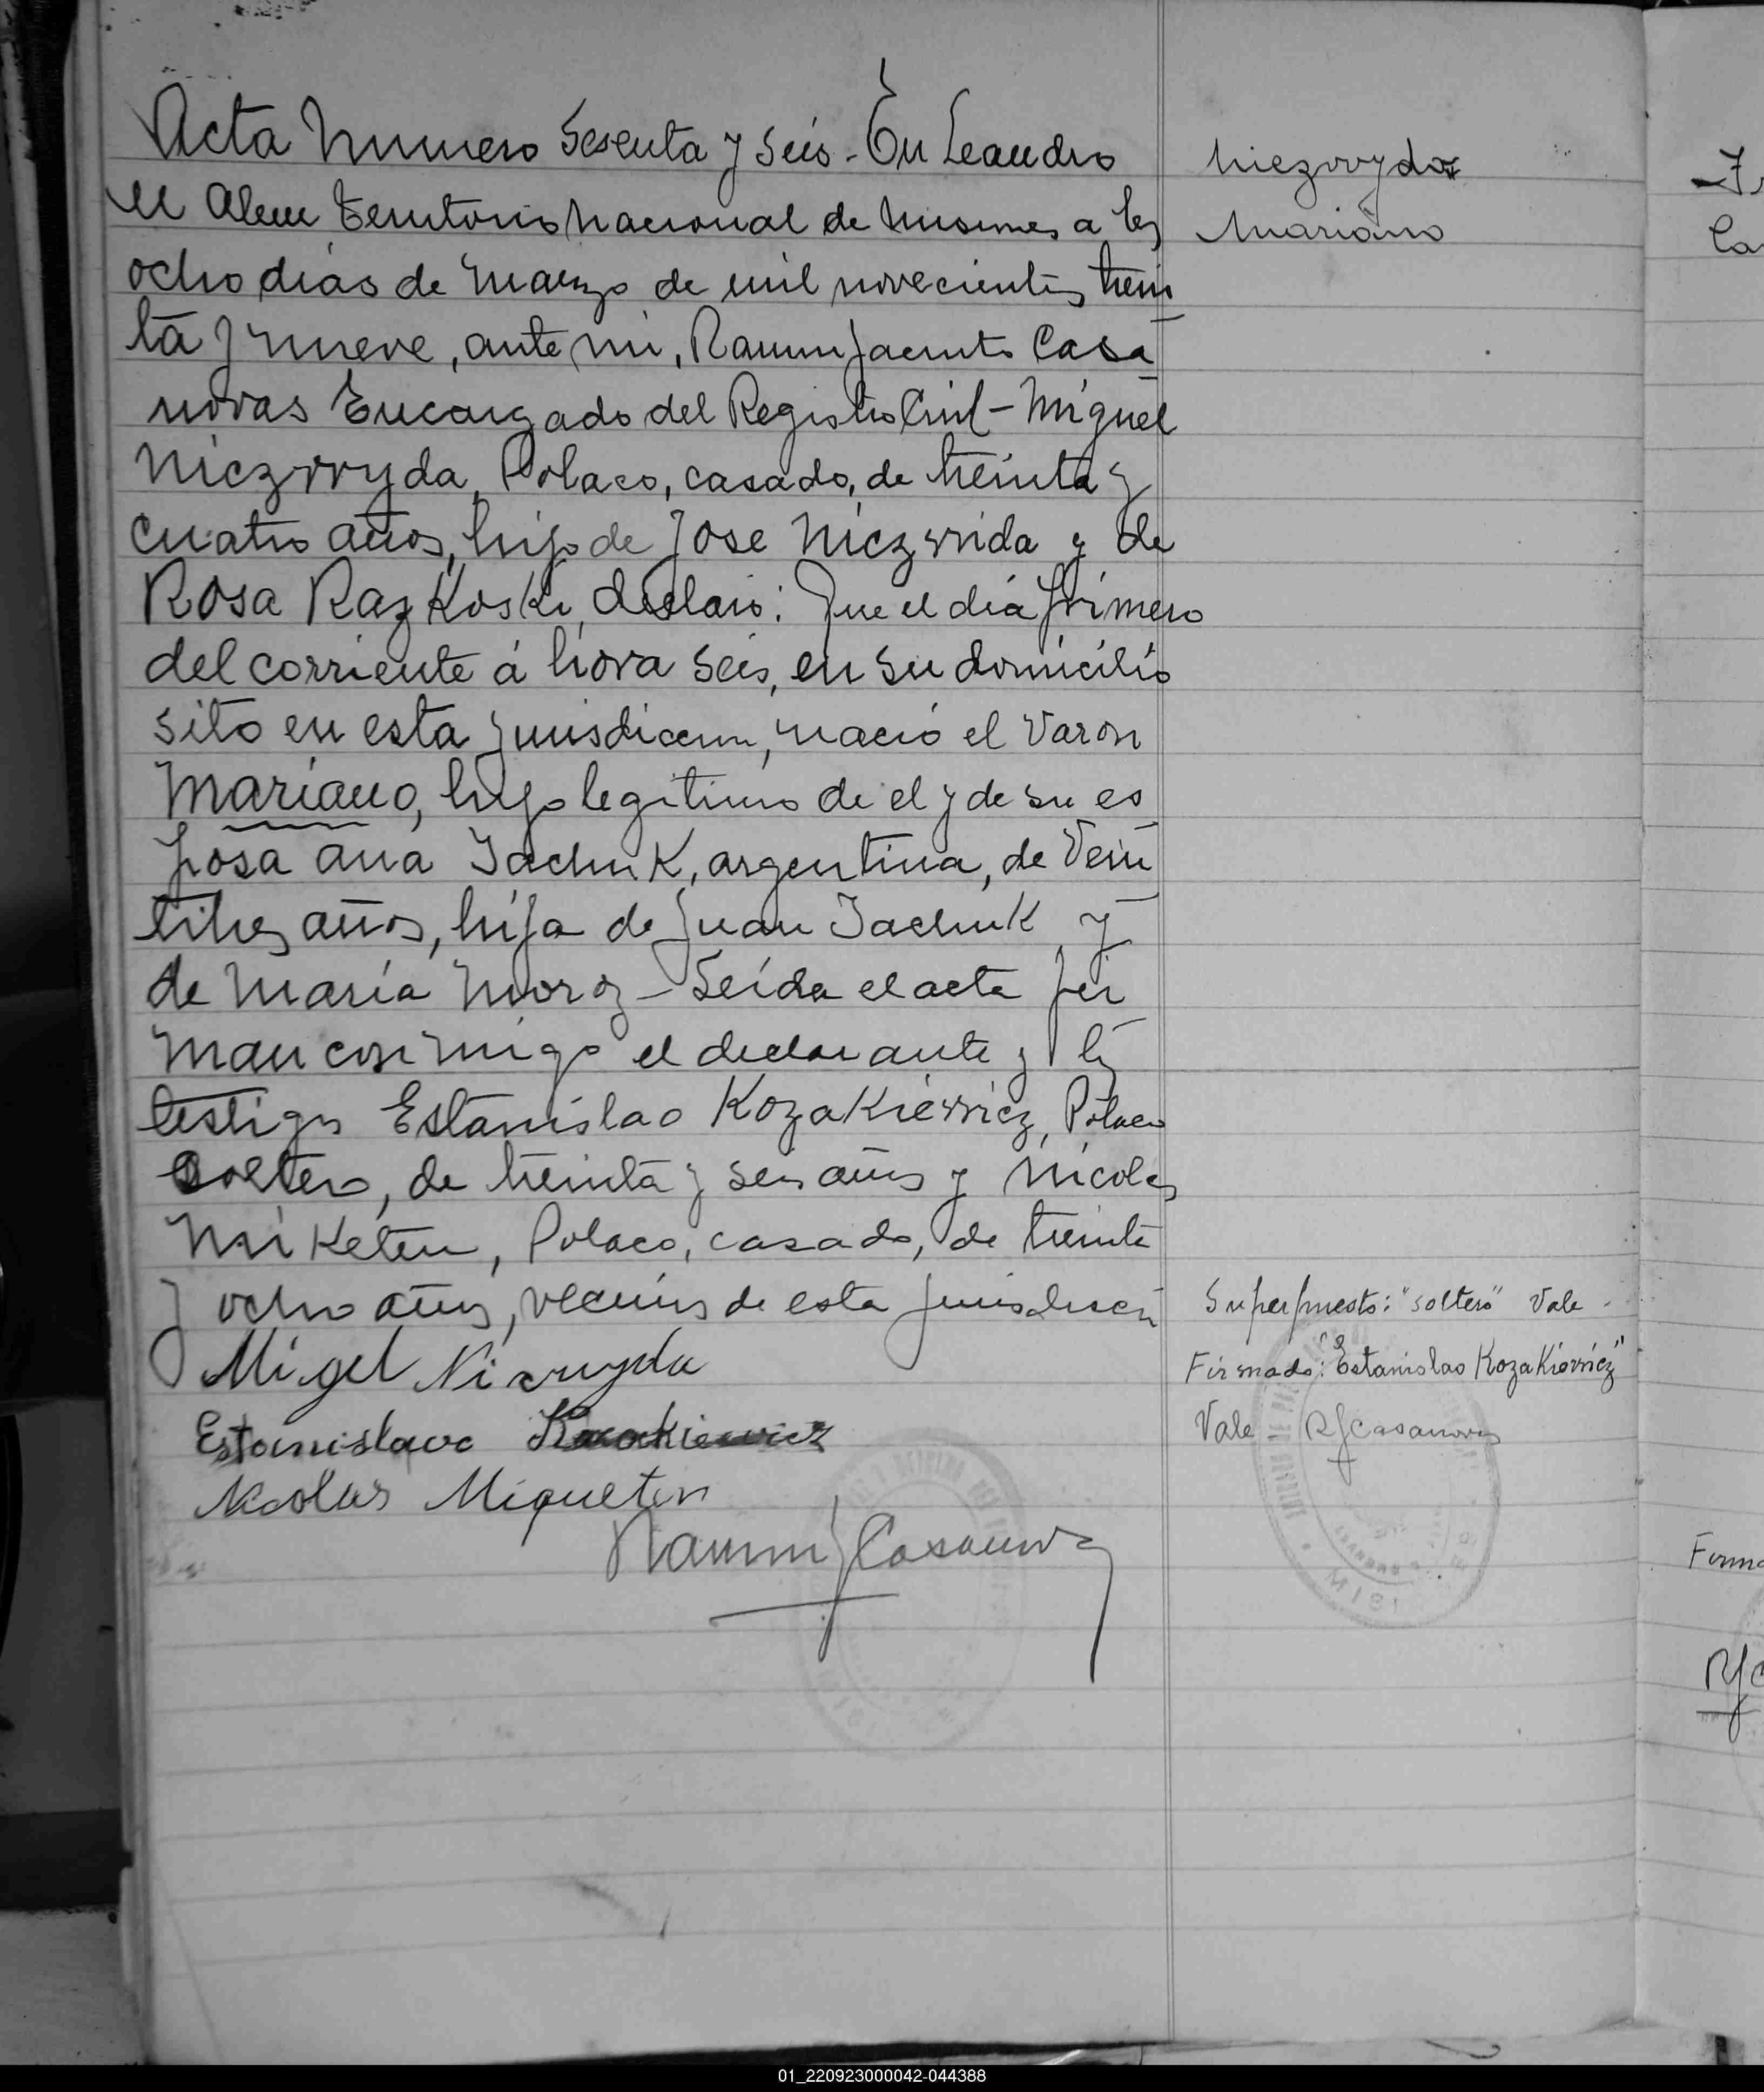 Acta Numero Sesenta y Seis - En Leandro
N Alem Territorio Nacional de Misiones a los
ocho dias de Marzo de mil novecientos trein
ta y nueve, ante mi, Ramon Jacinto Casa
novas Encargado del Registro Civil - Miguel
Niczwyda, Polaco, casado, de treinta y
cuatro años, hijo de Jose Niczwida y de
Rosa Razkoski, declaro: Que el día primero
del corriente á hora seis, en su domicilio
sito en esta jurisdiccion, nació el Varon
Mariano, hijo legitimo de el y de su es
posa Ana Iachuk, argentina, de Vein
titres años, hija de Juan Iachuk y
de María Moroz - Leída el acta fir
man con migo el declarante y los
testigos Estanislao Kozakiewicz, Polaco
soltero, de treinta y seis años y Nicolas
Miketen, Polaco, casado, de treinta
y ocho años, vecinos de esta jurisdiccion
Migel Nicwyda
Estanislavo Kozakiewicz
Nicolas Miqueten
Ramon J Casanovas
Niezwyda
Mariano
Superpuesto: "soltero" Vale -
Firmado: "Estanislao Kozakiewicz"
Vale - RJCasanovas
MISI
Firma
RJC
01_220923000042-044388